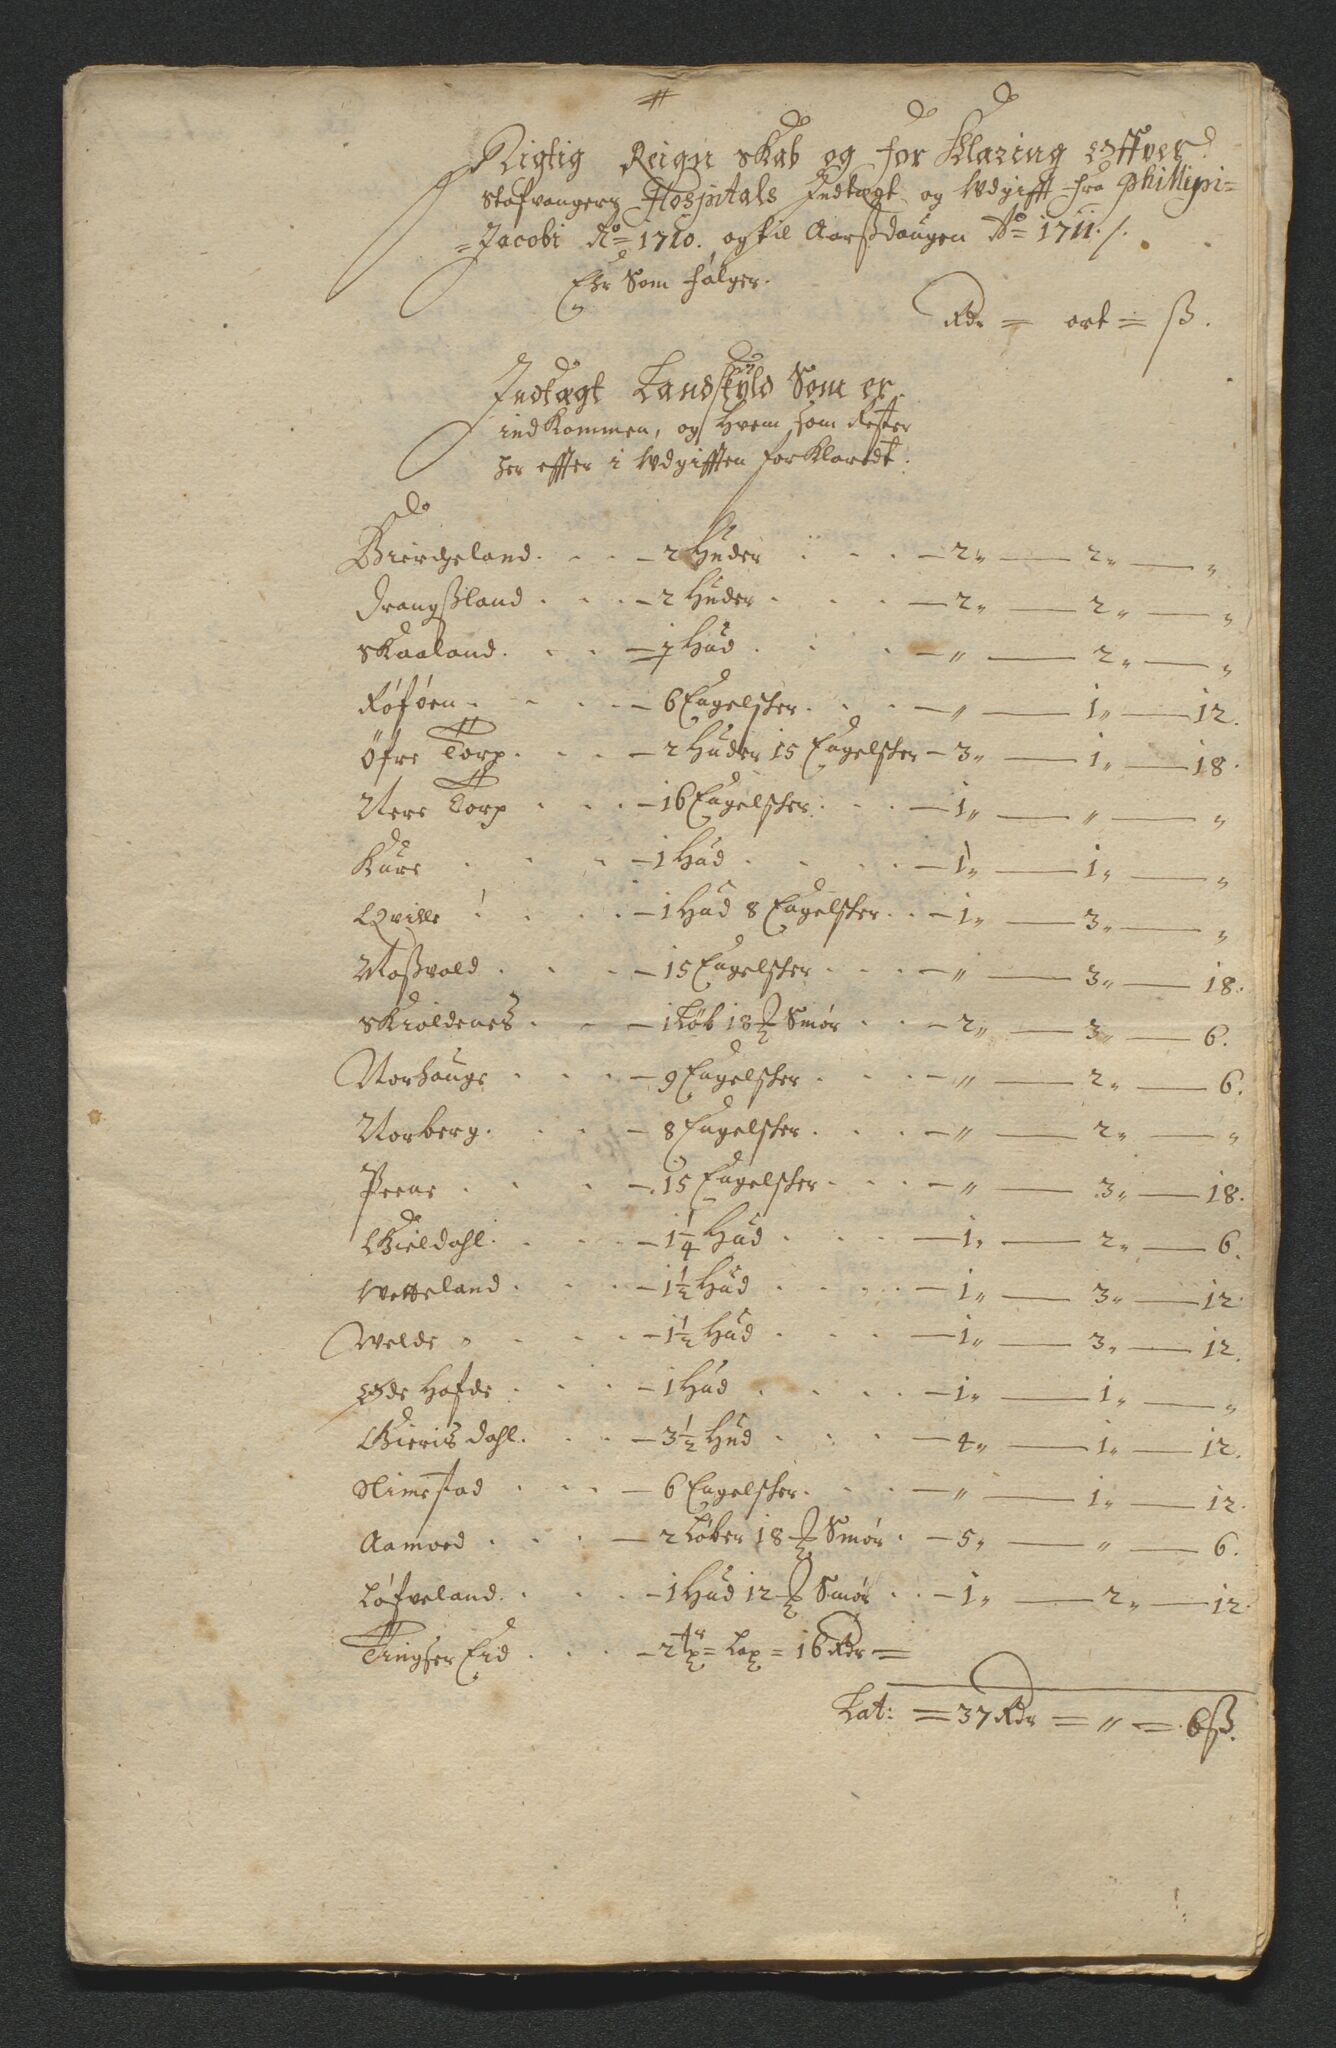 Rigtig Reignskab og forklaring offver
Stafvangers Hospitals Indtægt og Udgifft fra Phillipi=
=Jacobi Aº= 1710. og til Aarsdaugen Aº= 1711./.
Er Som følger.
Rdr = ort = ß.
Indtægt Landskyld Som er
indkommen, og hvem som Rester
her effter i Udgifften forklaredt.
Biercheland. - 2 Huder - 2„ - 2„ - „
Drangßland - 2 Huder - 2„ - 2„ - „
Skaaland. - ½ Hud - „ - 2„ - „
Røføen - 6 Engelsker - „ - 1„ - 12.
Øfre Torp - 2 Huder 15 Engelsker - 3„ - 1„ - 18.
Nere Torp - 16 Engelsker - 1„ - „ - „
Kure - 1 Hud - 1„ - 1„ - „
Qville - 1 Hud 8 Engelsker - 1„ - 3„ - „
Moßvold - 15 Engelsker - „ - 3„ - 18.
Skioldenes - 1 Løb 18 ℔ Smør - 2„ - 3„ - 6.
Norhouge - 9 Engelsker - „ - 2„ - 6.
Norberg. - 8 Engelsker - „ - 2„ - „
Prene - 15 Engelsker - „ - 3„ - 18.
Gieldahl. - 1¼ Hud - 1„ - 2„ - 6.
Vetteland - 1½ Hud - 1„ - 3„ - 12.
Welde - 1½ Hud - 1„ - 3„ - 12.
Øde Hofde - 1 Hud - 1„ - 1„ - „
Gieris dahl. - 3½ Hud - 4„ - 1„ - 12.
Nimestad - 6 Engelsker - „ - 1„ - 12.
Aamoed - 2 Løber 18 ℔ Smør - 5„ - „ - 6.
Løfveland. - 1 Hud 12 ℔ Smør - 1„ - 2„ - 12.
Tingser Eid - 2 = Lax = 16 Rdr =
Lat: = 37 Rdr = „ = 6 ß.